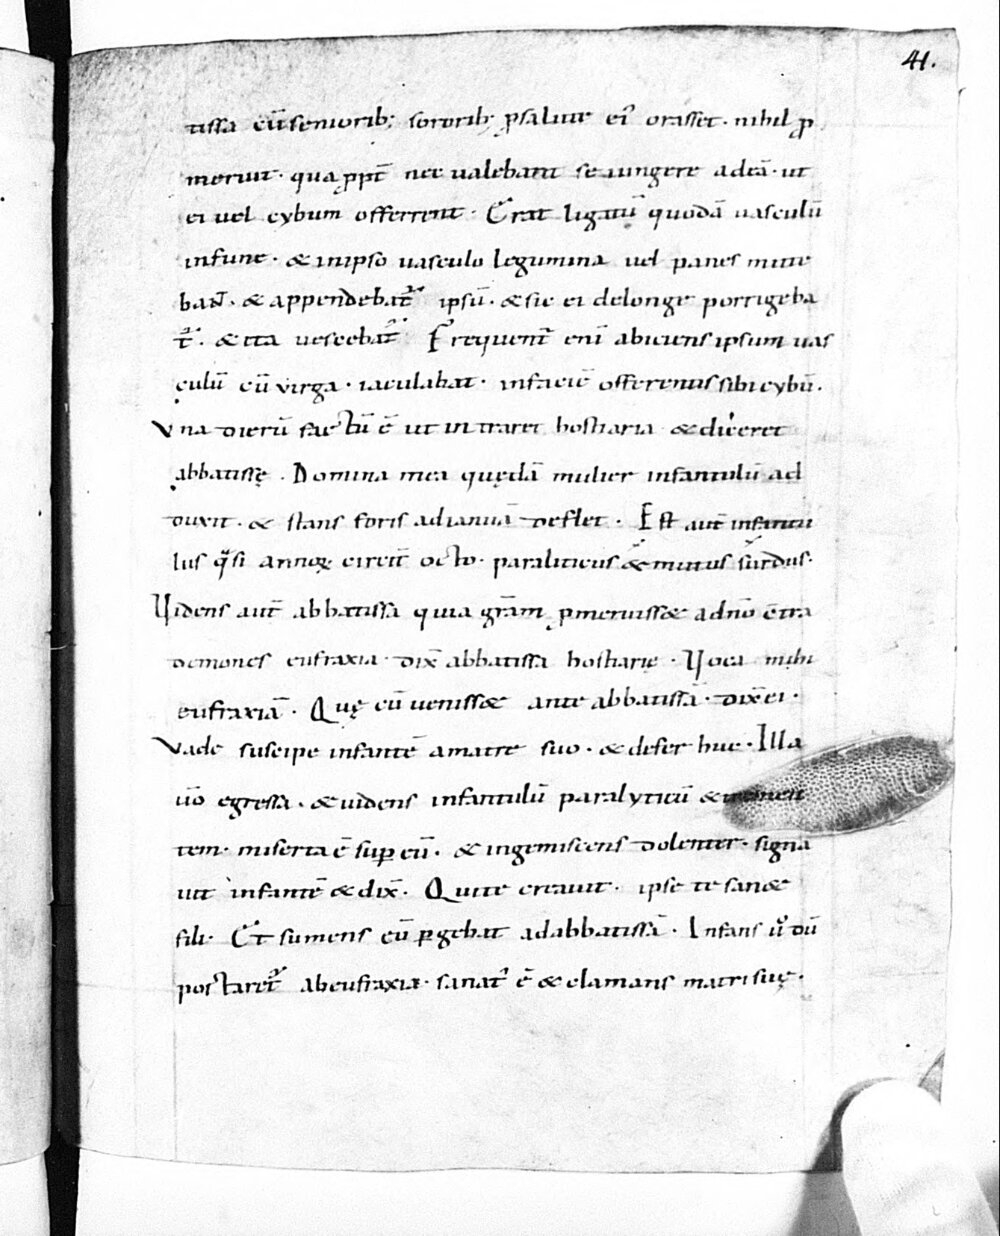 41.
tissa cū seniorib; sororib; ꝓ salute eiꝰ orasset · nihil ꝓ
meruit · qua ꝓpt̄ nec valebant se iungere ad eā · ut
ei vel cybum offerrent · Erat ligatū quodā vasculū
in fune · & in ipso vasculo legumina vel panes mitte
bant̄ · & appendebat̄ ipsū · & sic ei de longe porrigeba
t̄ · & ita vescebat̄ Frequent̄ eni abiciens ipsum vas
culū cū virga · iaculabat · in faciē offerentis sibi cybū ·
Una dierū factū ē ut intraret hostiaria & diceret
abbatissę · Domina mea quędā mulier infantulū ad
duxit · & stans foris ad ianuā deflet · Est aut̄ infantu
lus q̄si annoꝝ circit̄ octo · paraliticus & mutus surdus ·
Videns aut̄ abbatissa quia grām ꝓmeruiss& ad dn̄o cōtra
demones eufraxia · dix̄ abbatissa hostiarię · Voca mihi
eufraxiā · Quę cū veniss& ante abbatissā · dix̄ ei ·
Vade suscipe infantē a matre suo · & defer huc · Illa
v̄o egressa · & videns infantulū paralyticū & tremen
tem · miserta ē suꝑ eū · & ingemiscens dolenter · signa
vit infantē & dix̄ · Qui te creavit · ipse te san&
fili · Et sumens eū ꝑgebat ad abbatissā · Infans v̄ dū
portaret̄ ab eufraxia · sanatꝰ ē & clamans matri suę ·